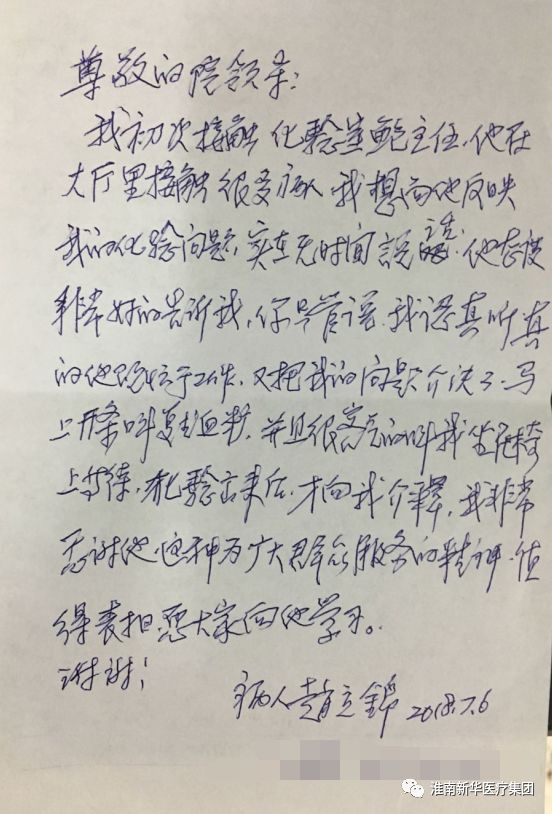 尊敬的院领导:
我初次接触化验室鲍主任,他在
大厅里接触很多病人,我想向他反映
我的化验问题,实在无时间說话.他态度
非常好的告诉我,你尽管说.我认真听,真
的他既忙于工作,又把我的问题介决了.马
上开条叫复查血粘,并且很客气的叫我坐在椅
上等待,有化验出来后,才向我介释,我非常
感谢他.这种为广大群众服务的精神.值
得表担 惩大家向他学习。
谢谢!
病人赵立錦 2018.7.6
淮南新华医疗集团